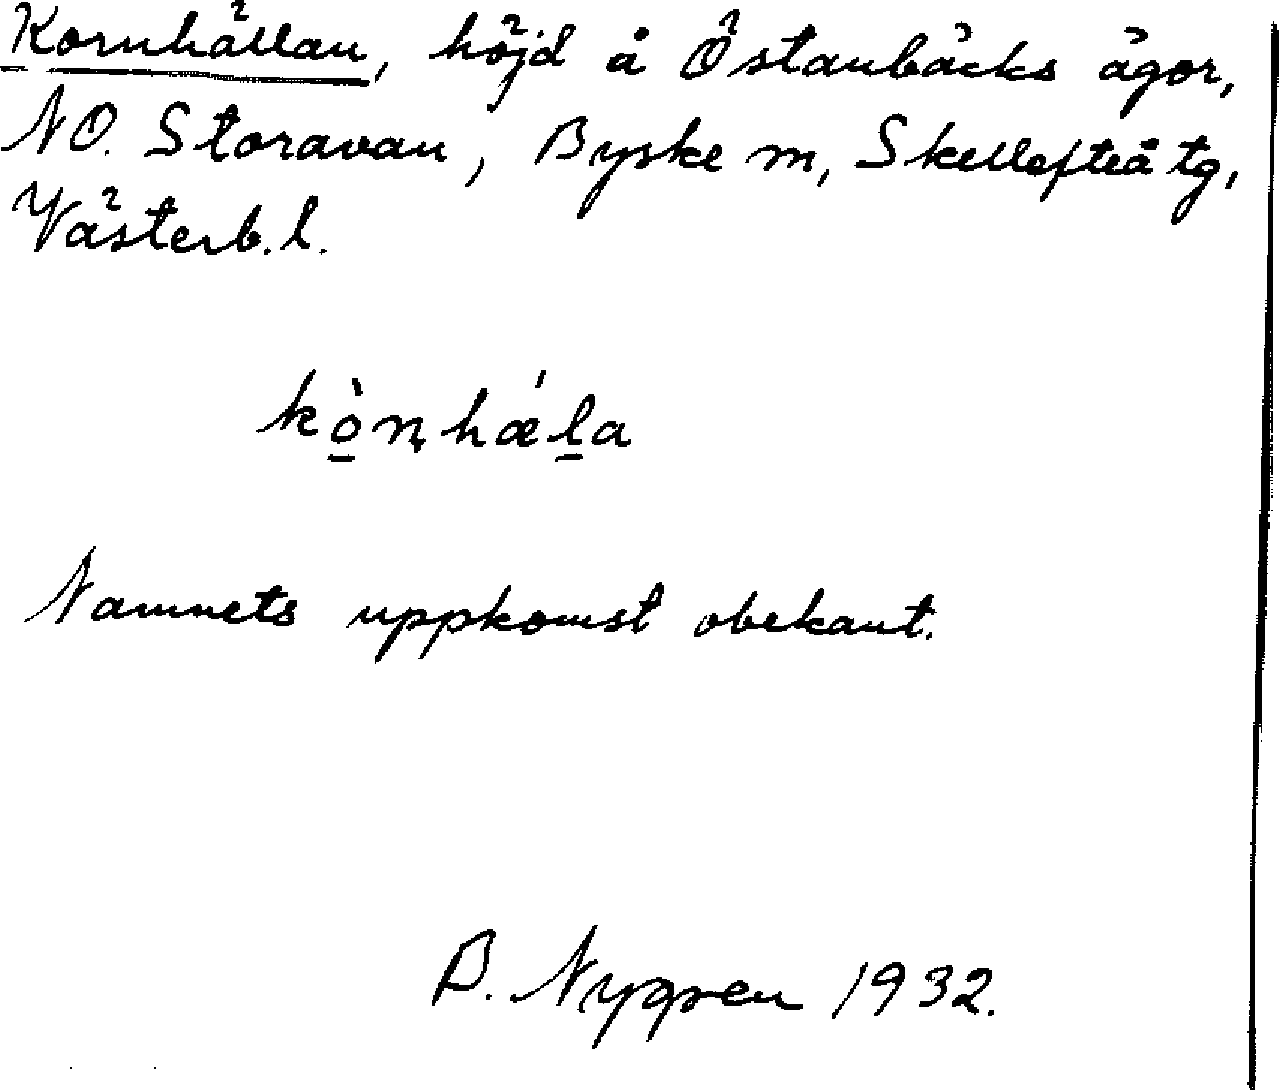 Kornhällan, höjd å Östanbäcks ägor,
NO. Storavan, Byske m, Skellefteå tg,
Västerb. l.
kò̱ɳhǽḻa
Namnets uppkomst obekant.
B. Nygren 1932.